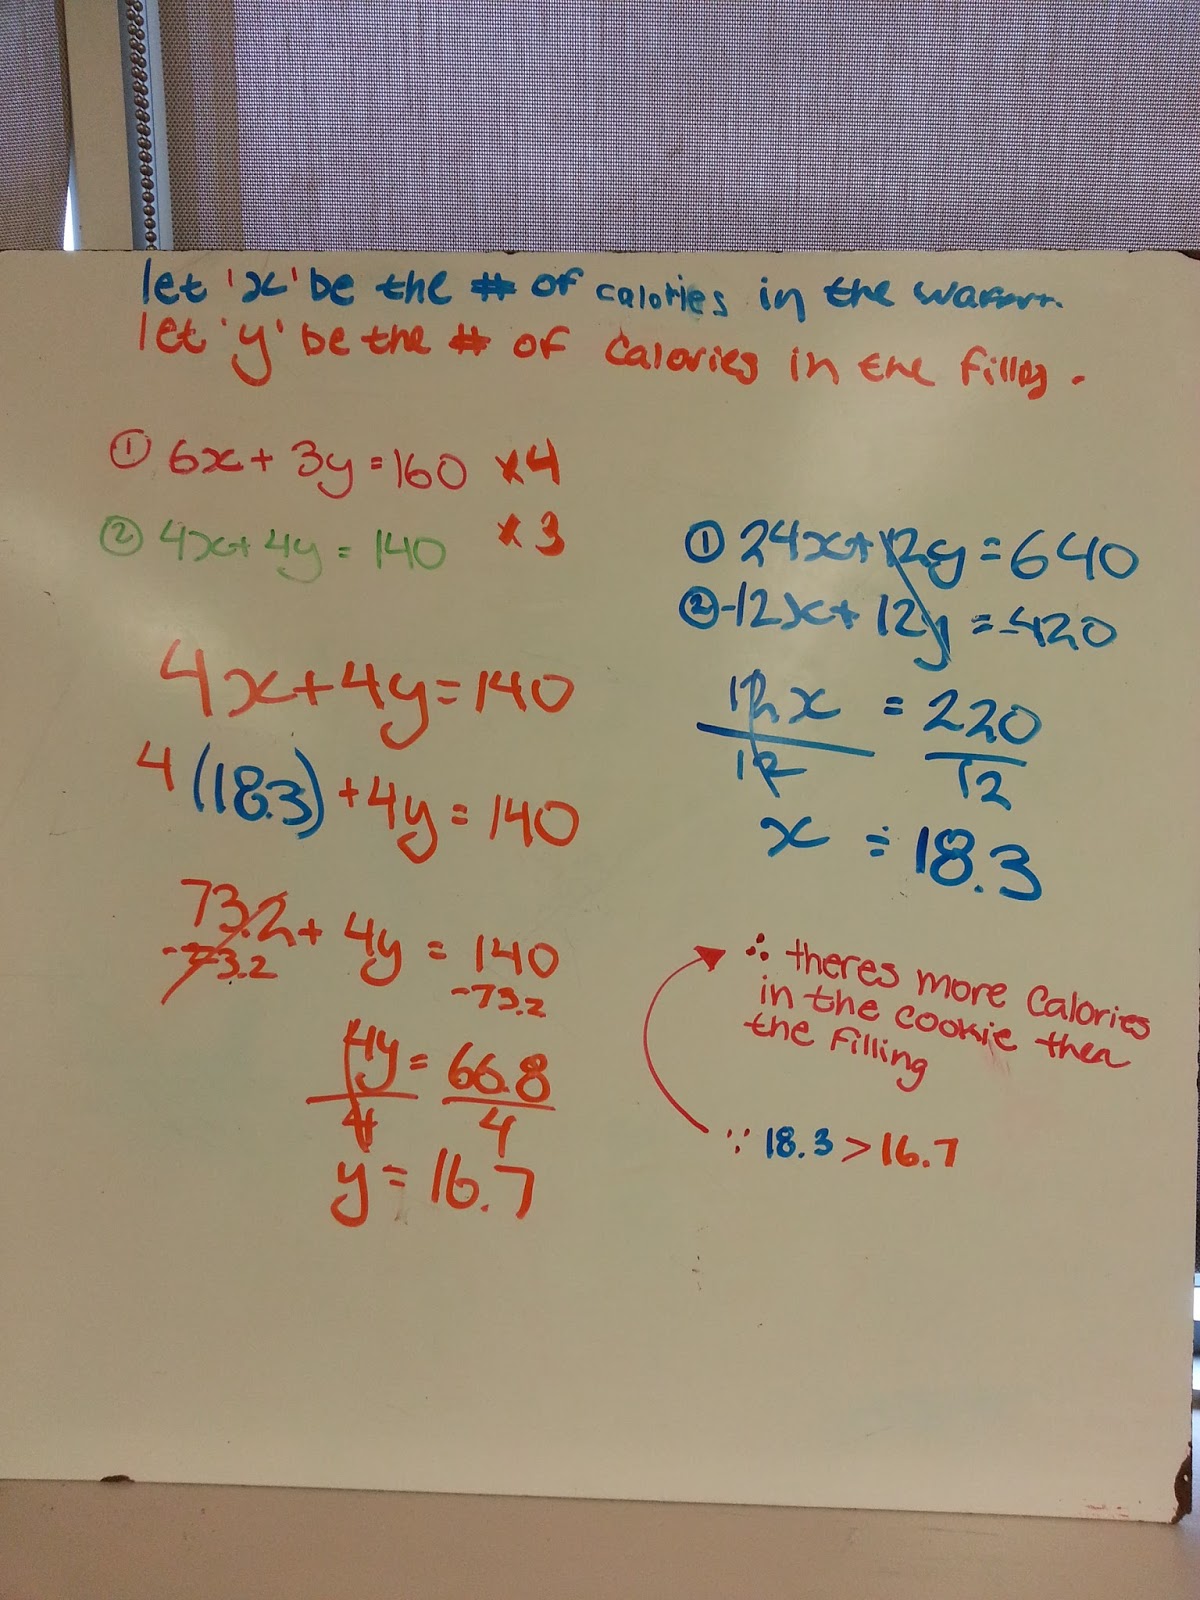 let 'x' be the # of calories in the
let 'y' be the # of calories in the
① 6x + 3y = 160 ×4
② 4x + 4y = 140 ×3
4x + 4y = 140
4(18.3) + 4y = 140
73.2 + 4y = 140
-73.2 -73.2
4y = 66.8
4 4
y = 16.7
① 24x + 12y = 640
② -12x + 12y = -420
12x = 220
12 12
x ≐ 18.3
∴ theres more Calories
in the cookie then
the filling
∵ 18.3 > 16.7